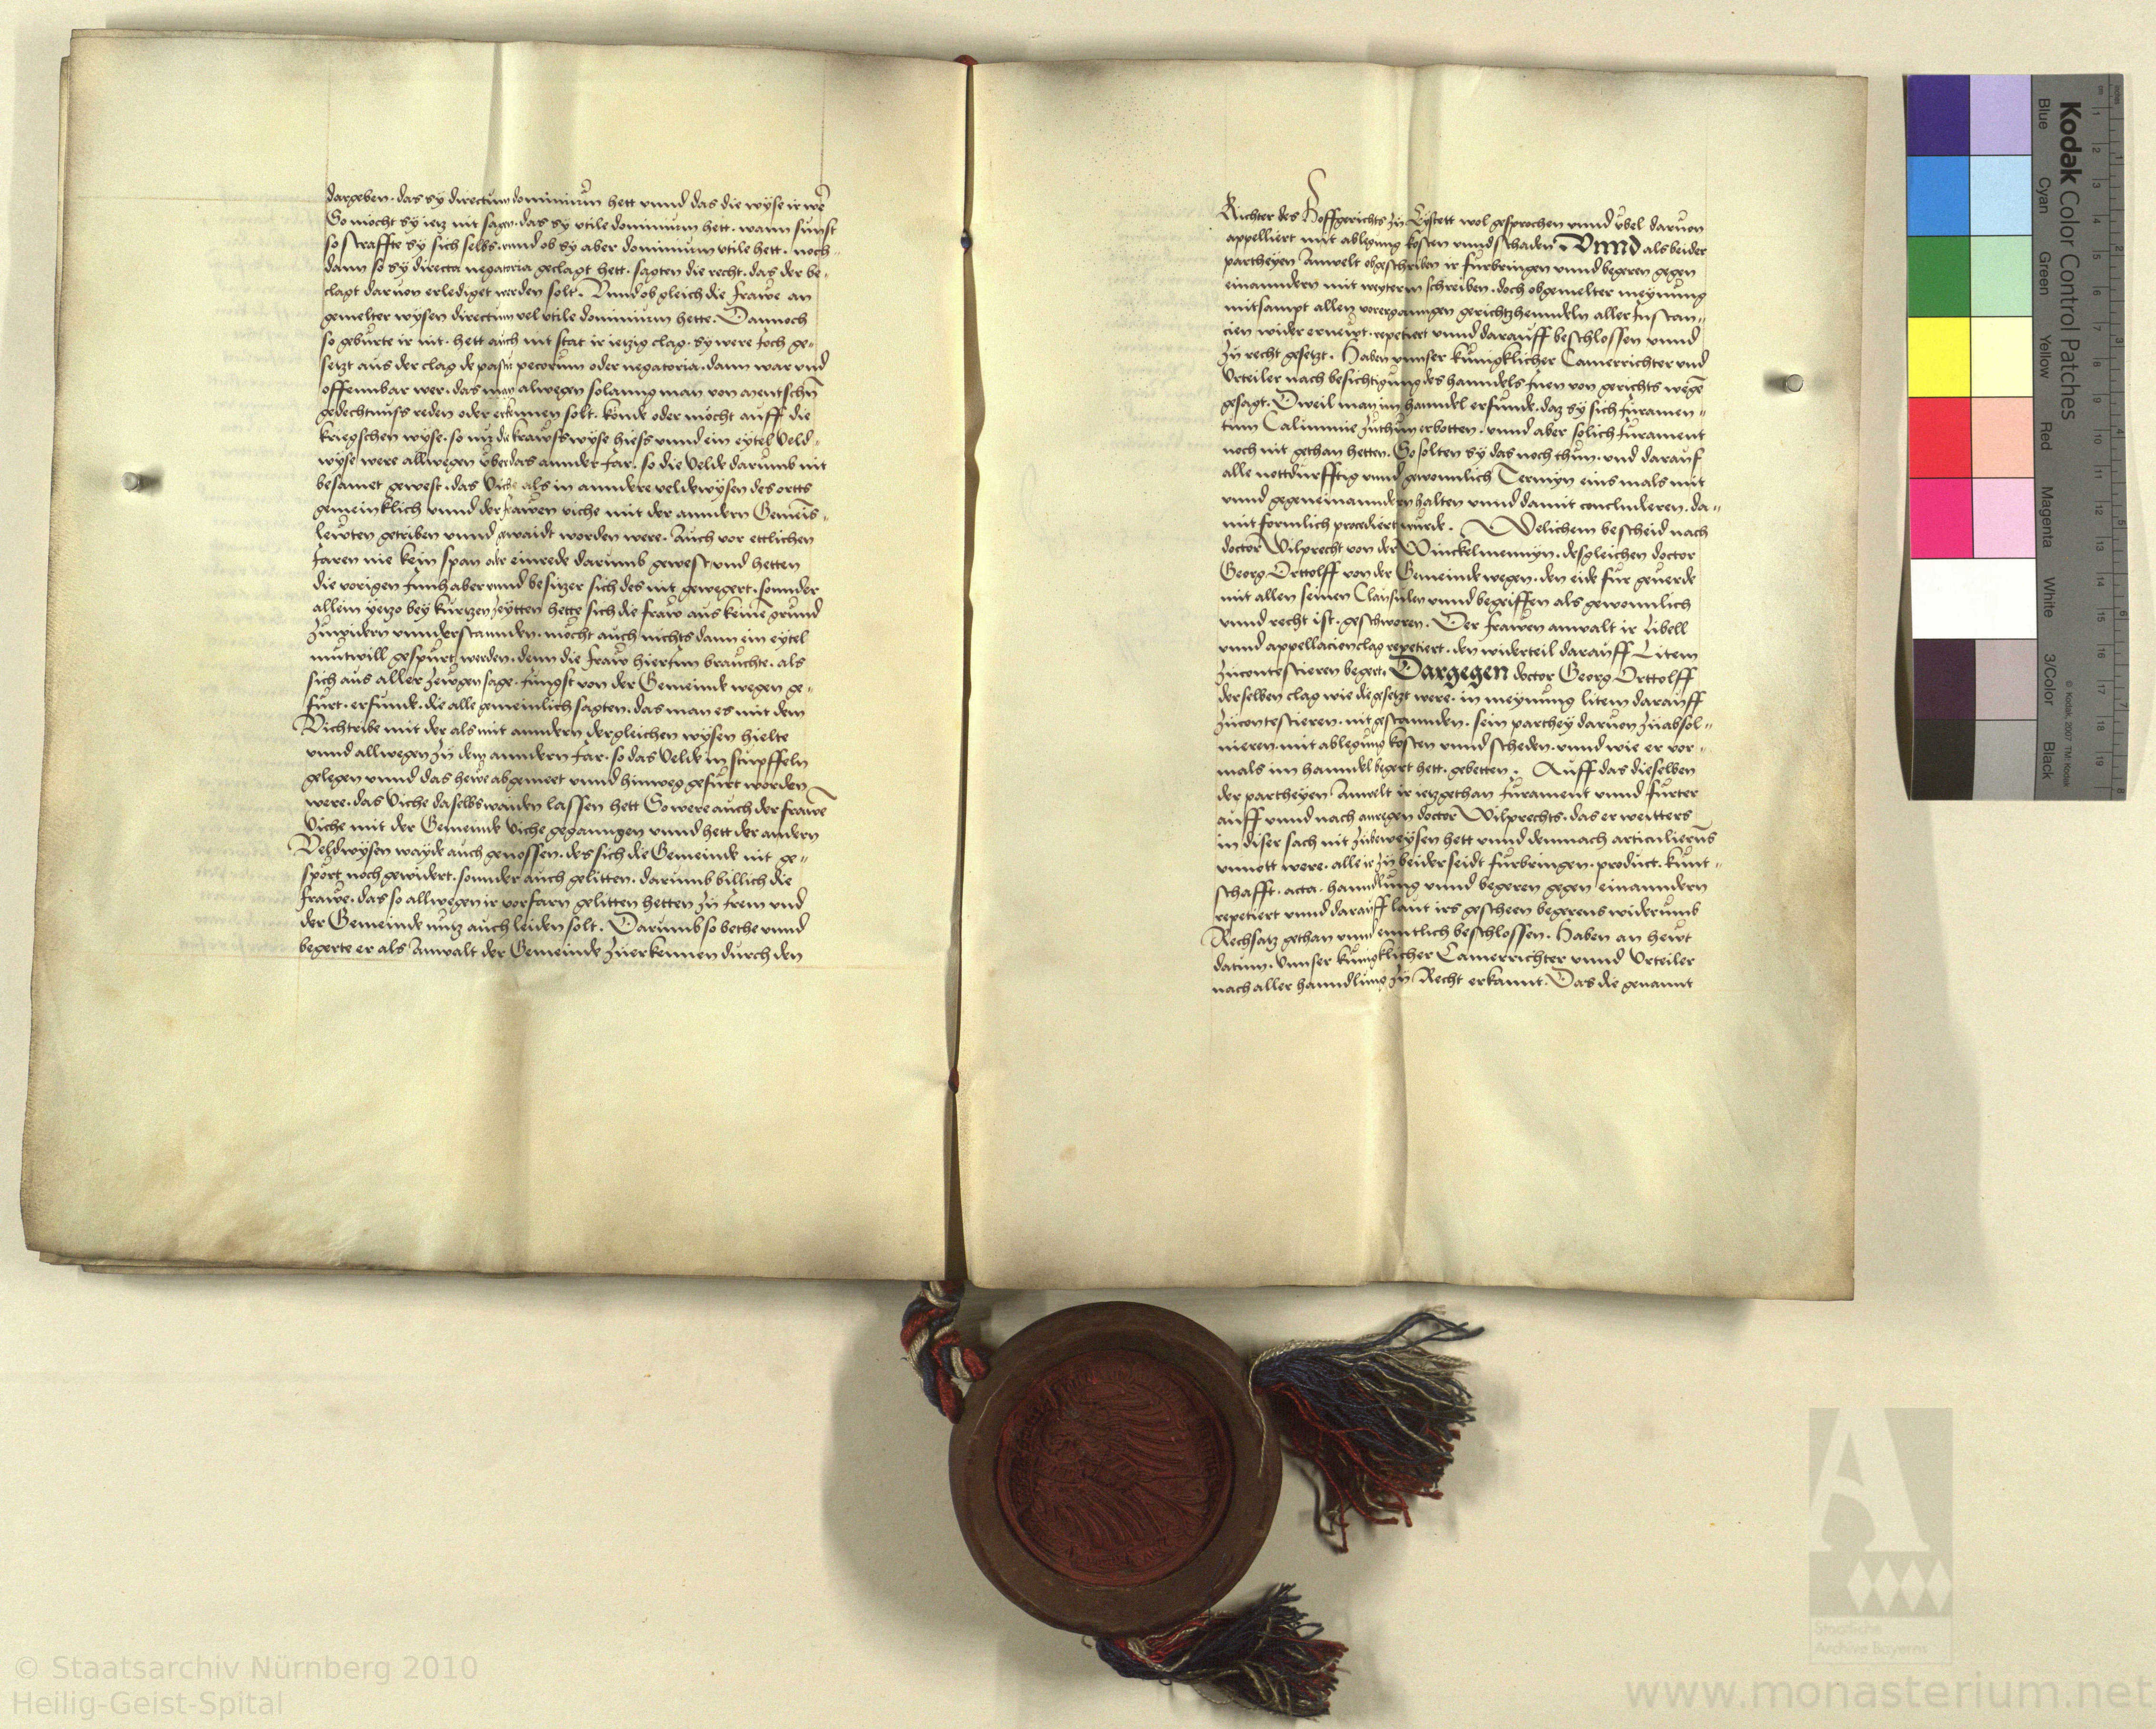 dargeben. das sy directum dominium hett vnnd das die wyse ir we
So mocht sy ietz nit sagen. das sy vtile dominium hett. wann sunst
so straffte sy sich selbs. vnnd ob sy aber dominium vtile hett. noch
dann so sy directa negatoria geclagt hett. sagten die recht. das der be„
clagt daruon erlediget werden solt. Vnnd ob gleich die frawe an
gemelter wysen directum vel vtile dominium hette. Dannoch
so geburte ir nit. hett auch nit stat ir ietzig clag. sy were joch ge„
setzt aus der clag de pastu pecorum oder negatoria. dann war vnd
offennbar wer. das man alwegen solanng man von mentschn
gedechtnuss reden oder erkennen solt. konde oder möcht auff die
kriegschen wyse. so nuz die krawsswyse hiess vnnd ein eytel Veld„
wyse were allwegen vber das annder Jar. so die Velde darumb nit
besamet gewest. das Viche als in anndere veldewysen des ortts
gemeinklich vnnd der frawen viche mit der anndern Gemeis„
lewten getriben vnnd gewaidt worden were. Auch vor ettlichen
Jaren nie kein span oder einrede darumb gewest vnd hetten
die vorigen Innhaber vnnd besitzer sich des nit gewegert. sonnder
allein yetzo bey kurtzen zeytten hette sich die fraw aus keine grund
zuwidern vnnderstannden. möcht auch nichts dann ein eytel
mutwill gespurt werden. denn die fraw hierjnn brauchte. als
sich aus aller zewgen sage. jungst von der Gemeinde wegen ge„
furt. erfunde. die alle gemeinlich sagten. das man es mit dem
Vichtribe mit der als mit anndern dergleichen wysen hielte
vnnd allwegen zu dem anndern Jar. so das Velde in stupffeln
gelegen vnnd das hewe abgemeet vnnd hinweg gefurt worden
were. das Viche daselbs waiden lassen hett So were auch der frawe
Viche mit der Gemeinde Viche geganngen vnnd hett der andern
Veldwysen wayde auch genossen. des sich die Gemeinde nit ge„
sport noch gewidert. sonnder auch gelitten. darumb billich die
frawe. das so allwegen ir vorfarn gelitten hetten zu Irem vnd
der Gemeinde nutz auch leiden solt. Darumb so bethe vnnd
begerte er als Anwalt der Gemeinde zuerkennen durch den
Richter des Hoffgerichts zu Eystett wol gesprochen vnnd vbel daruon
appelliert mit ablegung kosten vnnd schaden Vnnd als beider
partheyen Anwelt obgeschriben ir furbringen vnnd begeren gegen
einanndern mit weyterm schreiben. doch obgemelter meynung
mitsampt allen vorerganngen gerichtzhenndeln aller Instan„
cien wider ernewt. repetiert vnnd darauff beschlossen vnnd
zu recht gesetzt. Haben vnnser kunigklicher Camerrichter vnd
Vrteiler nach besichtigung des hanndels Inen von gerichts wege
gesagt. Dweil man im hanndel erfunde. daz sy sich Juramen„
tum Calumnie zuthun erbotten. vnnd aber solich Jurament
noch nit gethan hetten. So solten sy das noch thun. vnd darauf
alle nottdurfftig vnnd gewonnlich Termyn eins mals mit
vnnd gegeneinanndern halten vnnd damit concludieren. da„
mit formlich procediert wurde. Welichem bescheid nach
doctor Wilprecht von der Winckelmennyn. desgleichen doctor
Georg Orttolff von der Gemeinde wegen. den eide fur geuerde
mit allen seinen Clausulen vnnd begriffen als gewonnlich
vnnd recht ist. geschworen. Der frawen anwalt ir Libell
vnnd appellacien clag repetiert. den widerteil darauff Litem
zucontestieren begert. Dargegen doctor Georg Orttolff
derselben clag wie die gesetzt were. in meynung litem darauff
zucontestieren. nit gestannden. sein parthey daruon zuabsol„
uieren. mit ablegung kosten vnnd scheden. vnnd wie er vor„
mals im hanndel begert hett. gebetten. Auff das dieselben
der partheyen Anwelt ir ietzgethan Jurament vnnd furter
auff vnnd nach anregen doctor Wilprechts. das er weitters
in diser sach nit zubeweysen hett vnnd demnach articulierns
vnnott were. alle ir zu beiderseidt furbringen. product. kunt„
schafft. acta. hanndlung vnnd begeren gegen einanndern
repetiert vnnd darauff laut irs gescheen begerens widerumb
Rechsatz gethan vnnd enntlich beschlossen. Haben an hewt
datum. Vnnser kunigklicher Camerrichter vnnd Vrteiler
nach aller hanndlung zu Recht erkannt. Das die genannt
Kodak Color Control Patches
Blue Cyan Green Yellow Red Magenta White 3/Color Black
© Kodak, 2007 TM: Kodak
Staatliche
Archive Bayerns
© Staatsarchiv Nürnberg 2010
Heilig-Geist-Spital
www.monasterium.net